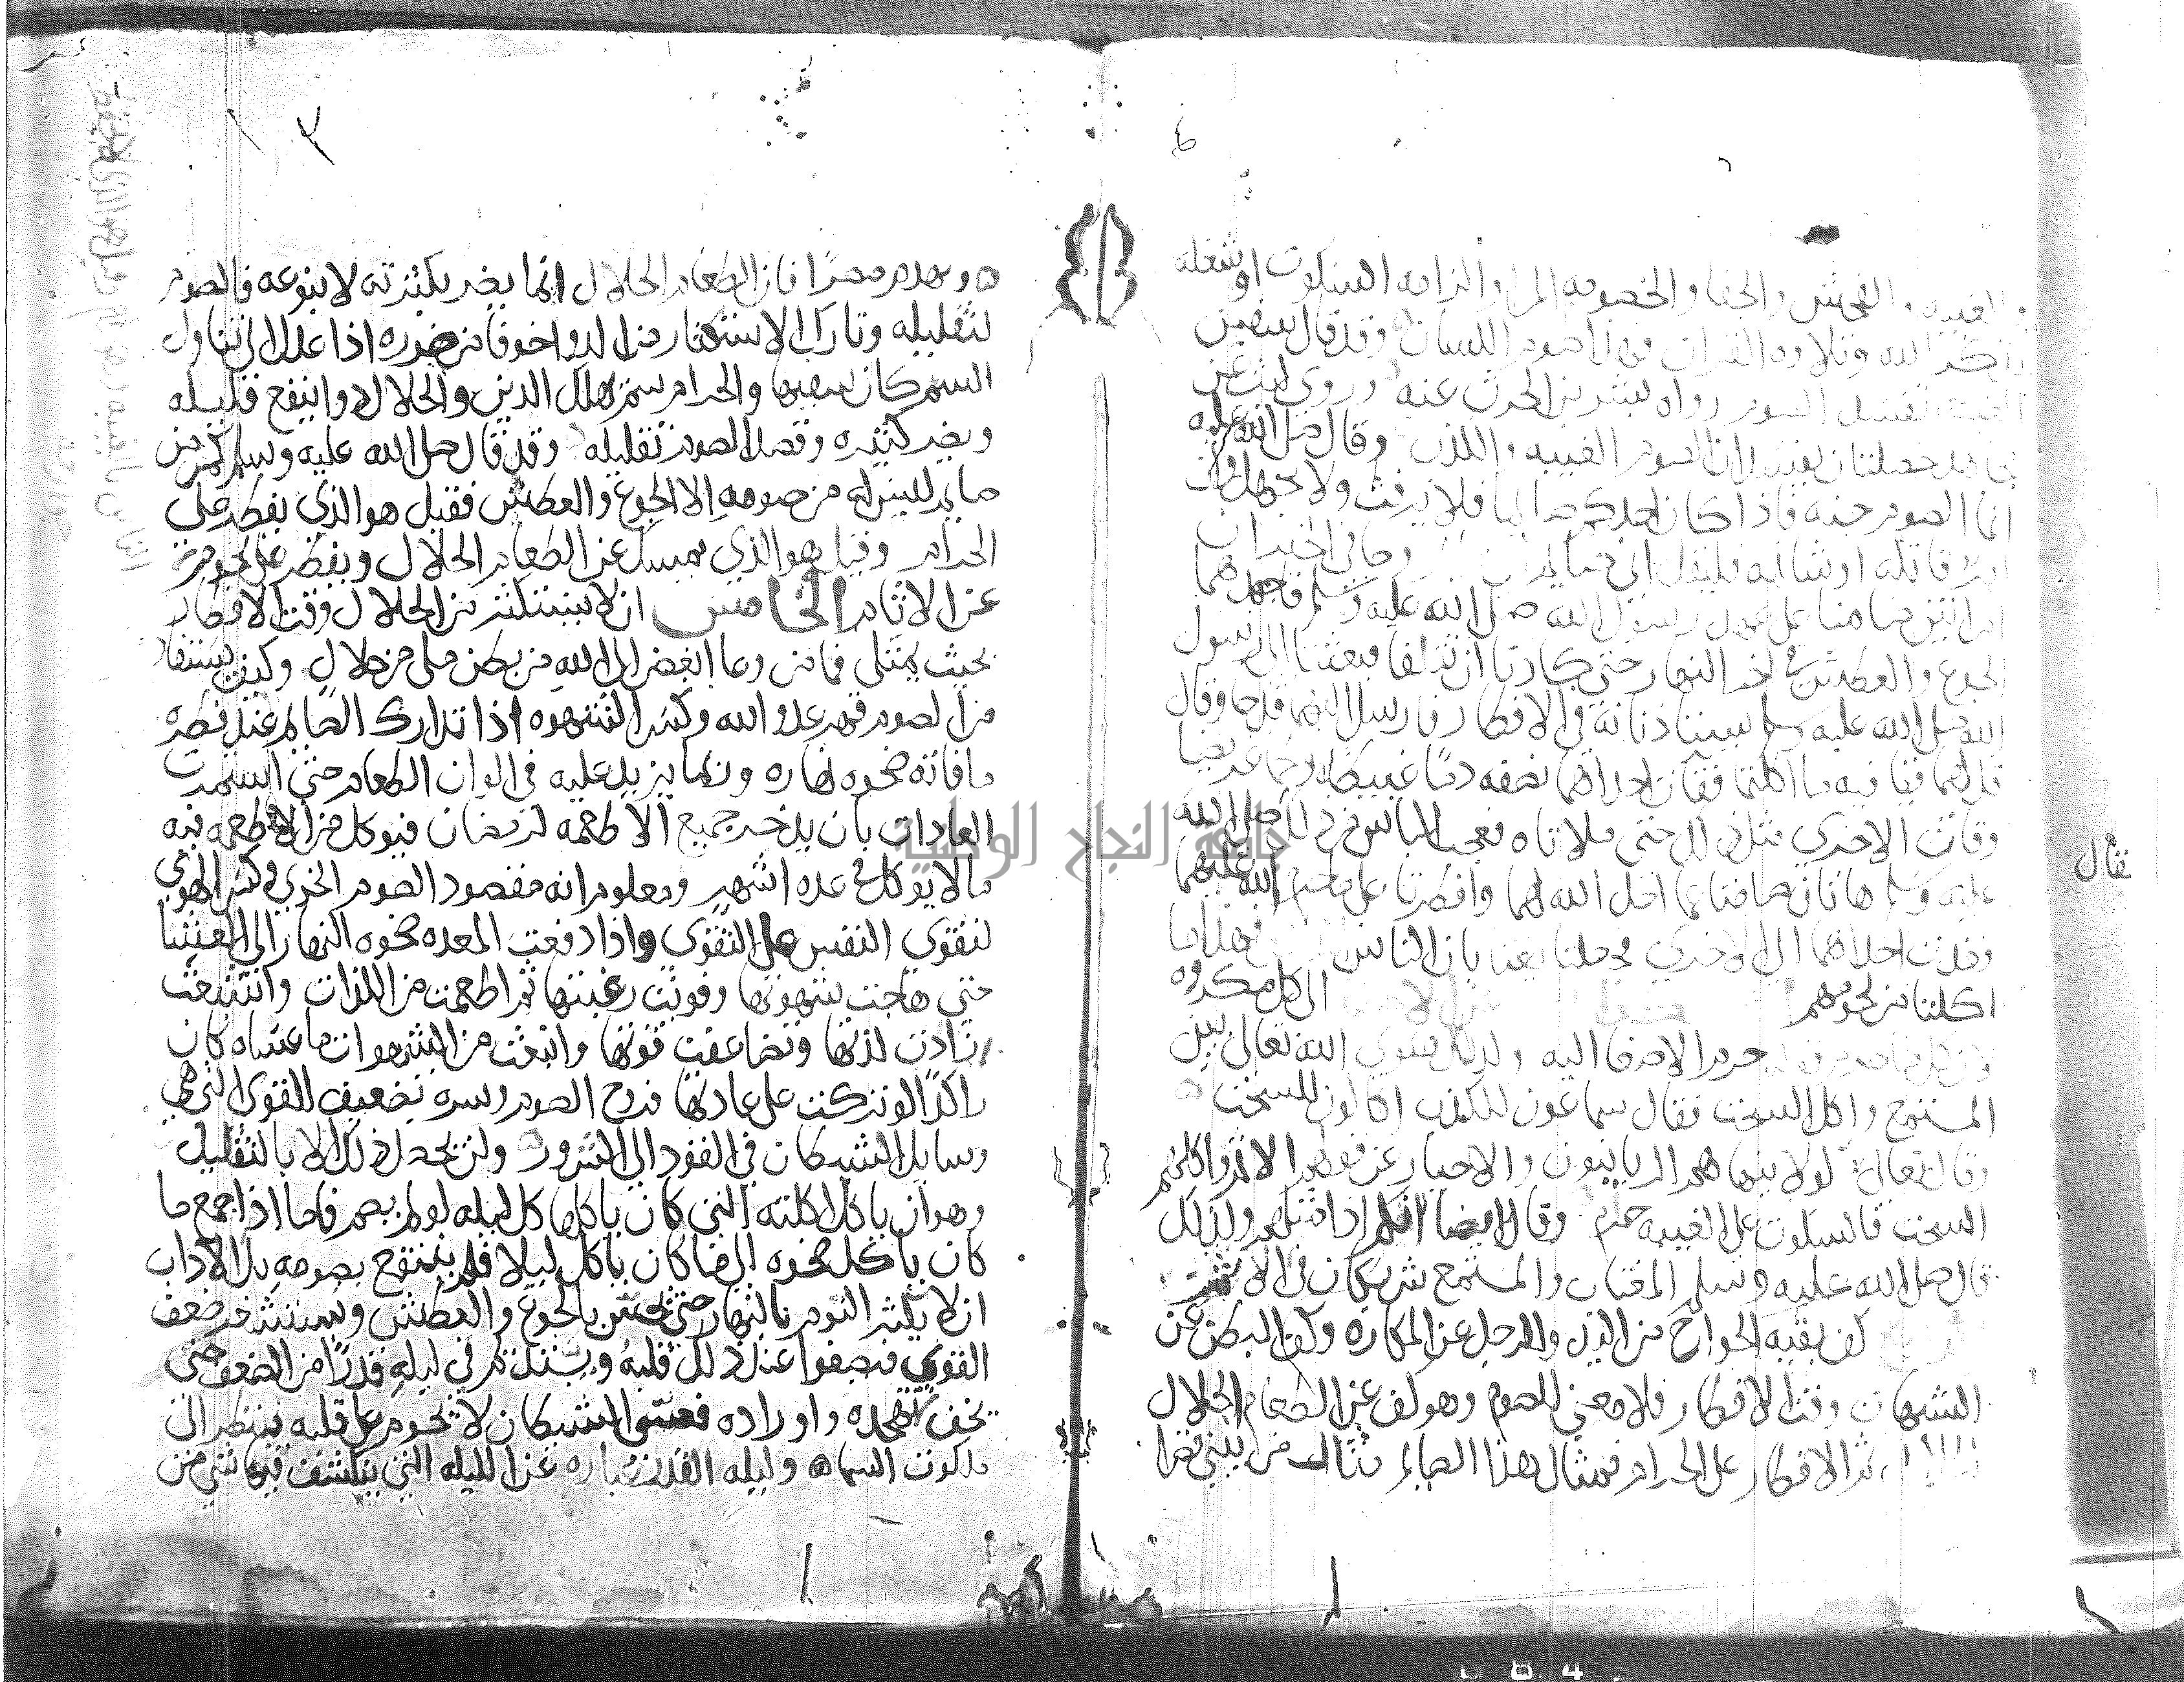 والغيبه والفحش والجفا والخصومه والمرا والزامه السكوت او شغله
بذكر الله وتلاوه القران فهذا صوم اللسان وقد قال سفين
الغيبه تفسد الصوم رواه بشر بن الحرث عنه وروى ليث عن
مجاهد خصلتان يفسدان الصوم الغيبه والكذب وقال صلى الله عليه
انما الصوم جنه فاذا كان احدكم صايما فلا يرفث ولا يجهل وان
امرؤ قاتله او شاتمه فليقل انى صايم وجا فى الخبر ان
امراتين صامتا على عهد رسول الله صلى الله عليه وسلم فاجهدهما
الجوع والعطش فى اخر النهار حتى كادتا ان تتلفا فبعثتا الى رسول
الله صلى الله عليه وسلم يستاذنانه فى الافطار فارسل اليهما قدحا وقال
قل لهما قيا فيه ما اكلتما فقات احداهما نصفه دما عبيطا ولحما غريضا
وقات الاخرى مثل ذلك حتى ملاتاه فعجب الناس من ذلك فقال صلى الله
عليه وسلم هاتان صامتا عما احل الله لهما وافطرتا على ما حرم الله عليهما
قعدت احداهما الى الاخرى فجعلتا يغتابان الناس فهذا ما
اكلتا من لحومهم الى كل مكروه
حرم الاصغا اليه ولذلك سوى الله تعالى بين
المستمع واكل السحت فقال سماعون للكذب اكالون للسحت
وقال تعالى لولا ينهاهم الربانيون والاحبار عن قولهم الاثم واكلهم
السحت فالسكوت على الغيبه حرام وقال ايضا انكم اذا مثلهم ولذلك
قال صلى الله عليه وسلم المغتاب والمستمع شريكان فى الاثم
كف بقيه الجوارح من اليد والرجل عن المكاره وكف البطن عن
الشبهات وقت الافطار فلا معنى للصوم وهو كف عن الطعام الحلال
ثم الافطار على الحرام فمثال هذا الصايم مثال من يبنى قصرا
ويهدم مصرا فان الطعام الحلال انما يضر بكثرته لا بنوعه فالصوم
لتقليله وتارك الاستكثار من الدوا خوفا من ضرره اذا عدل الى تناول
السم كان سفيها والحرام سم مهلك الدين والحلال دوا ينفع قليله
ويضر كثيره وقصد الصوم تقليله وقد قال صلى الله عليه وسلم كم من
صايم ليس له من صومه الا الجوع والعطش فقيل هو الذي يفطر على
الحرام وقيل هو الذي يمسك عن الطعام الحلال ويفطر على لحوم
عن الاثام الخامس ان لا يستكثر من الحلال وقت الافطار
بحيث يمتلى فما من وعا ابغض الى الله من بطن ملى من حلال وكيف يستفاد
من الصوم قهر عدو الله وكسر الشهوه اذا تدارك الصايم عند فطره
ما فاته ضحوه نهاره وربما يزيد عليه فى الوان الطعام حتى استمرت
العادات بان يدخر جميع الاطعمه لرمضان فيوكل من الاطعمه فيه
ما لا يوكل فى عده اشهر ومعلوم انه مقصود الصوم الخوى وكسر الهوى
لتقوى النفس على التقوى واذا دفعت المعده ضحوه النهار الى العشا
حتى هاجت شهوتها وقويت رغبتها ثم اطعمت من اللذات واشبعت
زادت لذتها وتضاعفت قوتها وانبعث من الشهوات ما عساه كان
راكدا لو تركت على عادتها فروح الصوم وسره تضعيف القوى التى هى
وسايل الشيطان فى القود الى الشرور ولن يحصل ذلك الا بالتقليل
وهو ان ياكل اكلته التى كان ياكلها كل ليله لو لم يصم فاما اذا جمع ما
كان ياكل ضحوه الى ما كان ياكل ليلا فلم ينتفع بصومه بل الاداب
ان لا يكثر النوم بالنهار حتى يحس بالجوع والعطش ويستشعر ضعف
القوى فيصفوا عند ذلك قلبه ويستديم فى ليله قدرا من الضعف حتى
يخف تهجده واوراده فعسى الشيطان لا يحوم على قلبه فينظر الى
ملكوت السما وليله القدر عباره عن الليله التى ينكشف فيها شى من
تقال